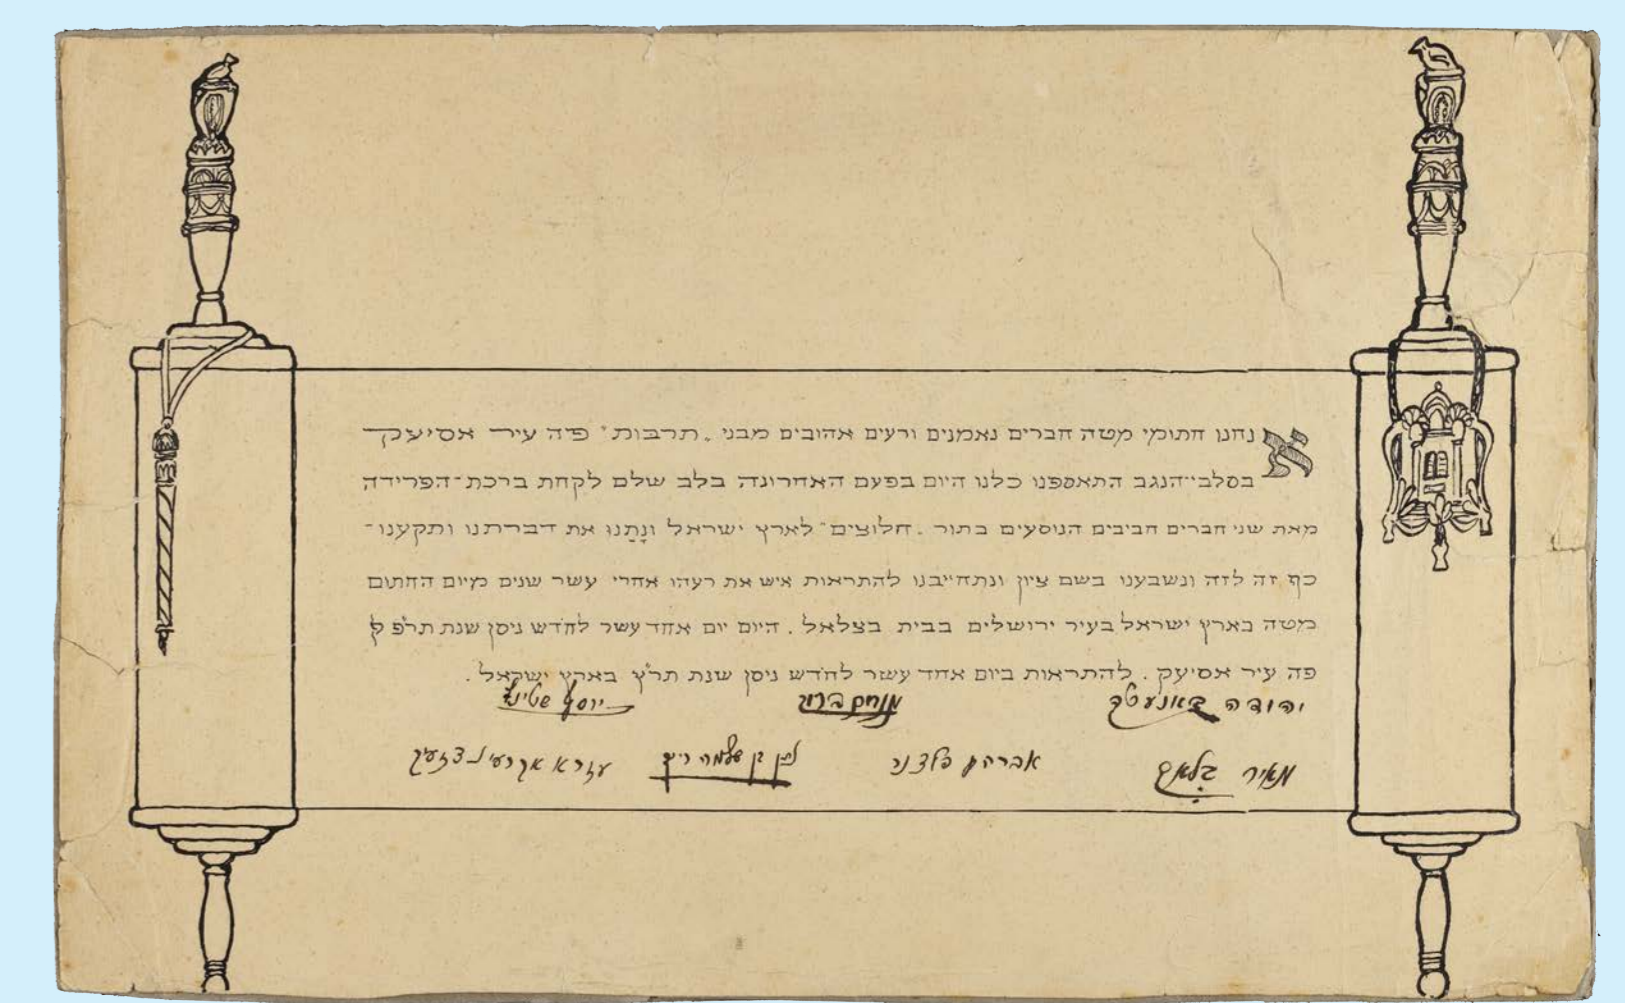 אנחנו חתומי מטה חברים נאמנים ורעים אהובים מבני „תרבות" פיה עיר אסיעק
בסלב־הנגב התאספנו כלנו היום בפעם האחרונה בלב שלם לקחת ברכת־הפרידה
מאת שני חברים חביבים הנוסעים בתור „חלוצים" לארץ ישראל ונָתַנּוּ את דברתנו ותקענו־
כף זה לזה ונשבענו בשם ציון ונתחייבנו להתראות איש את רעהו אחרי עשר שנים מיום החתום
מטה בארץ ישראל בעיר ירושלים בבית בצלאל. היום יום אחד עשר לחדש ניסן שנת תר״פ
פה עיר אסיעק. להתראות ביום אחד עשר לחדש ניסן שנת תר״ץ בארץ ישראל.
יהודה מנחם יוסף
מאיר אברהם נתן בן שלמה עזרא